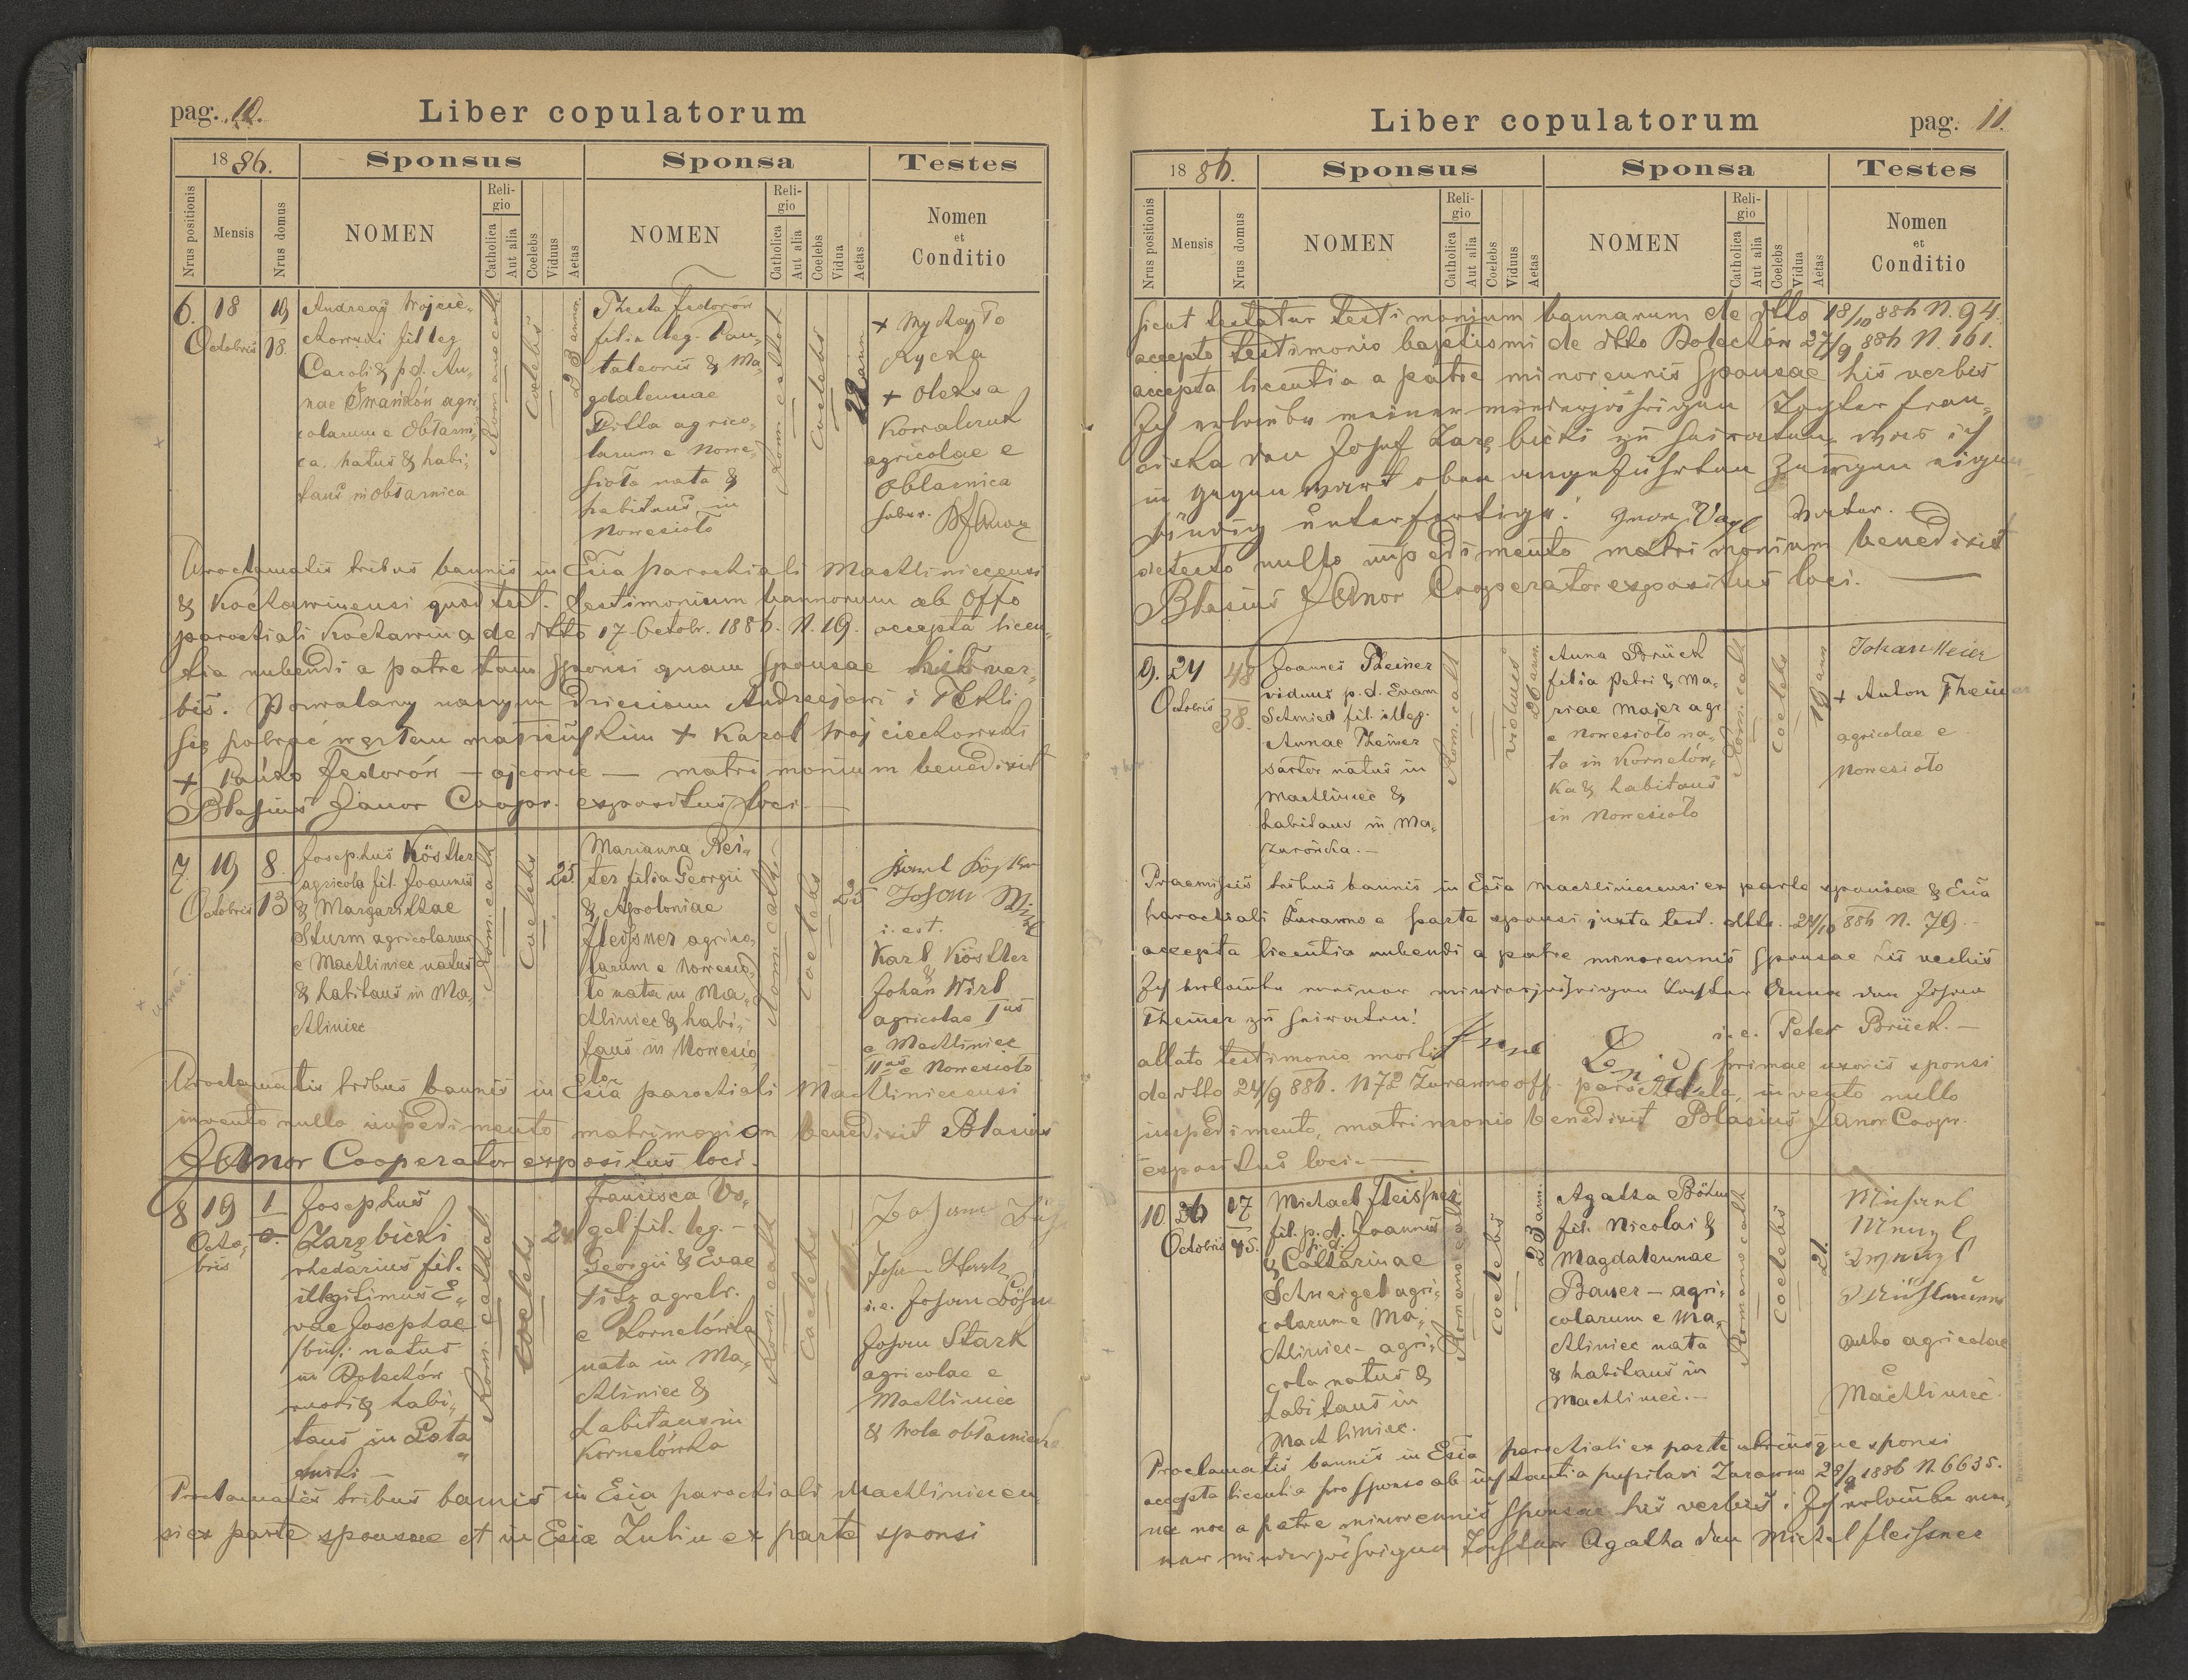 pag. 10.
Liber copulatorum
1886.
Sponsus
Sponsa
Testes
Nrus positionis
Mensis
Nrus domus
NOMEN
Religio
Catholica
Aut alia
Coelebs
Viduus
Aetas
NOMEN
Religio
Catholica
Aut alia
Coelebs
Vidua
Aetas
Nomen
et
Conditio
6.
18
Octobris
19
18.
Andreas Wojcie-
chowski fil leg
Caroli & p.d. An-
nae Iwanków agri
colarum e Obłasni-
ca. natus & habi-
tans in Obłasnica
coelebs
23 annor.
Thecla Fedorów
filia leg. Pan-
taleonis & Ma-
gdalennae
Dilla agrico-
larum e Nowe-
sioło nata &
habitans in
Nowesioło
coelebs
22 ann
+ Mykayło
Rycka
+ Oleksa
Kowalczuk
agricolae e
Oblasnica
Proclamatis tribus bannis in Ecia parochiali Machliniecensi
& Kochawinensi quod test. testimonium bannorum ab Offo
parochiali Kochawina de dtto 17. Octobr. 1886. N. 19. accepta licen-
tia nubendi a patre tam sponsi quam sponsae his ver-
bis. Pozwalamy naszym dzieciom Andrzejowi i Tekli
się pobrać węzłem małżeńskim + Karol Wojciechowski
+ Pańko Fedorów – ojcowie – matrimonium benedixit
Blasius Janor Coopr. expositus loci. —
7.
19
Octobris
8.
13
Josephus Köstler
agricola fil. Joannis
& Margarithae
Sturm agricolarum
e Machliniec natus
& habitans in Ma-
chliniec
Rom. cath
Coelebs
25
Marianna Rei-
ter filia Georgii
& Apoloniae
Fleissner agrico-
larum e Nowesio-
ło nata in Ma-
chliniec & habi-
tans in Nowesio-
ło
Rom. cath
coelebs
25
i. est.
Karl Köstler
&
Johan Wirl
agricolae Ius
e Machliniec
IIus e Nowesioło
Proclamatis tribus bannis in Ecia parochiali Machliniecensi
invento nullo impedimento matrimonium benedixit Blasius
Janor Cooperator expositus loci.
8
19
Octo-
bris
1
Josephus
Zarębicki
rhedarius fil.
illegitimus E-
vae Josephae
natus
in Bolechów
ruski & habi-
tans in
Rom. cathol.
coelebs
24
Francisca Vo-
gel fil. leg. –
Georgii & Evae
Filz agrclr.
e Kornelówka
nata in Ma-
chliniec &
habitans in
Kornelówka
Rom. cath
coelebs
i. e. Johan Böhm
Johan Stark
agricolae e
Machliniec
& Wola obłasnicka
Proclamatis tribus bannis in Ecia parochiali Machliniecen-
si ex parte sponsae et in Ecia Lubin ex parte sponsi
Liber copulatorum
pag. 11.
1886.
Sponsus
Sponsa
Testes
Nrus positionis
Mensis
Nrus domus
NOMEN
Religio
Catholica
Aut alia
Coelebs
Viduus
Aetas
NOMEN
Religio
Catholica
Aut alia
Coelebs
Vidua
Aetas
Nomen
et
Conditio
sicut testatur testimonium bannarum de dtto 18/10 886 N. 94.
accepto testimonio baptismi de dtto Bolechów 27/9 886 N. 161.
accepta licentia a patre minorennis sponsae his verbis
Ich erlaube meiner minderjährigen Tochter Fran-
ciska den Josef Zarębicki zu heiraten, was ich
in gegenwart oben angeführten Zeugen eigen-
händig unterfertige! Georg Vogl Vater.
detecto nullo impedimento matrimonium benedixit
Blasius Janor Cooperator expositus loci. —
9.
24
Octobris
48
38.
Joannes Theiner
viduus p.d. Evam
Schmied fil. illeg.
Annae Theiner
sartor natus in
Machliniec &
habitans in Ma-
zurówka. –
Rom. cath
viduus
26 ann
Anna Brück
filia Petri & Ma-
riae Majer agr
e Nowesioło na-
ta in Kornelów-
ka & habitans
in Nowesioło
Rom. cath
coelebs
19 ann
Johan Meier
+ Anton Theiner
agricolae e
Nowesioło
Praemissis tribus bannis in Ecia Machliniecensi ex parte sponsae & Ecia
parochiali Żurawno e parte sponsi juxta test. dtto. 24/10 886 N. 79. –
accepta licentia nubendi a patre minorennis sponsae his verbis
Ich erlaube meiner minderjährigen Tochter Anna den Johan
Theiner zu heiraten!
i. e. Peter Brück. –
allato testimonio mortis primae uxoris sponsi
de dtto 24/9 886. N 72 Żurawno off. parochiale, invento nullo
impedimento, matrimonio benedixit Blasius Janor Coopr.
expositus loci. —
10.
26
Octobris
17
45.
Michael Fleissner
fil. p.d. Joannis
& p.d. Catharinae
Schweigel agri-
colarum e Ma-
chliniec – agri-
cola natus &
habitans in
Machliniec.
Romano cath
coelebs
23 ann.
Agatha Böhm
fil. Nicolai &
Magdalennae
Bauer – agri-
colarum e Ma-
chliniec nata
& habitans in
Machliniec. –
Romano cath
coelebs
21.
ambo agricolae
e
Machliniec.
Proclamatis bannis in Ecia parochiali ex parte utriusque sponsi
accepta licentia pro sponso ab instantia pupilari Żurawno 28/9 1886 N. 6635.
nec non a patre minorennis sponsae his verbis: Ich erlaube mei-
ner minderjährigen Tochter Agatha den Michel Fleissner